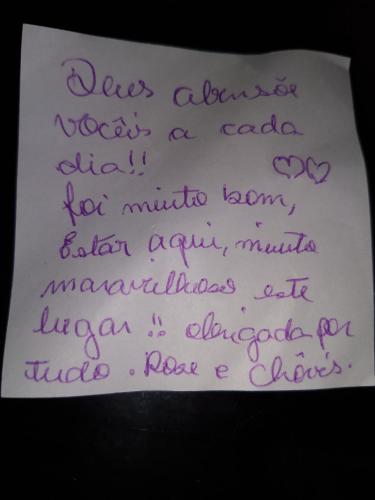 Deus abensõe
vocêis a cada
dia!!
foi minto bom,
Estar aqui, minto
maravilhoso este
lugar!! obrigada por
tudo. Rose e Chôvis.